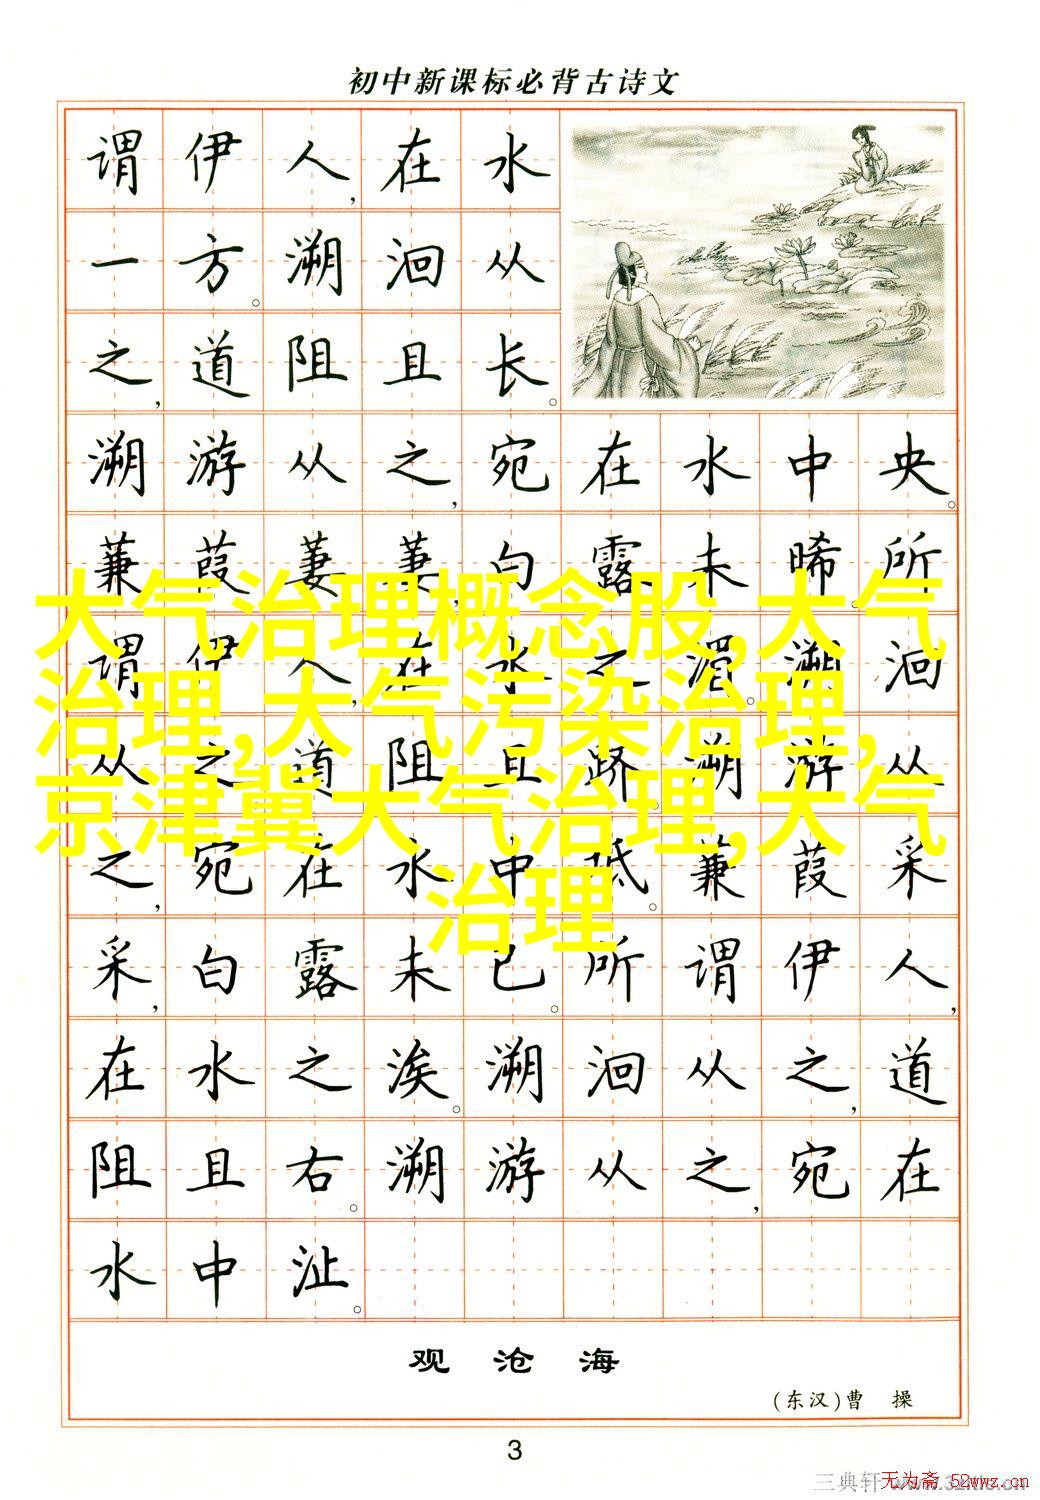 初中新课标必背古诗文
谓伊人,在水
一方。溯洄从
之,道阻且长。
溯游从之,宛在水中央。
蒹葭萋萋,白露未晞。所
谓伊人,在水之湄。溯洄
从之,道阻且跻。溯游从
之,宛在水中坻。蒹葭采
采,白露未已。所谓伊人,
在水之涘。溯洄从之,道
阻且右。溯游从之,宛在
水中沚。
大气治理概念股,大气
治理,大气污染治理,
京津冀大气治理,大气
治理
观沧海
(东汉)曹操
3
三典轩
无为斋 52wwz.cn